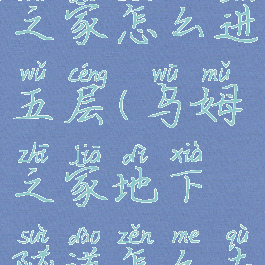 之家怎么进
wǔ céng wū mǔ
五层(乌姆
zhī jiā dì xià
之家地下
suì dào zěn me qù
隧道怎么去